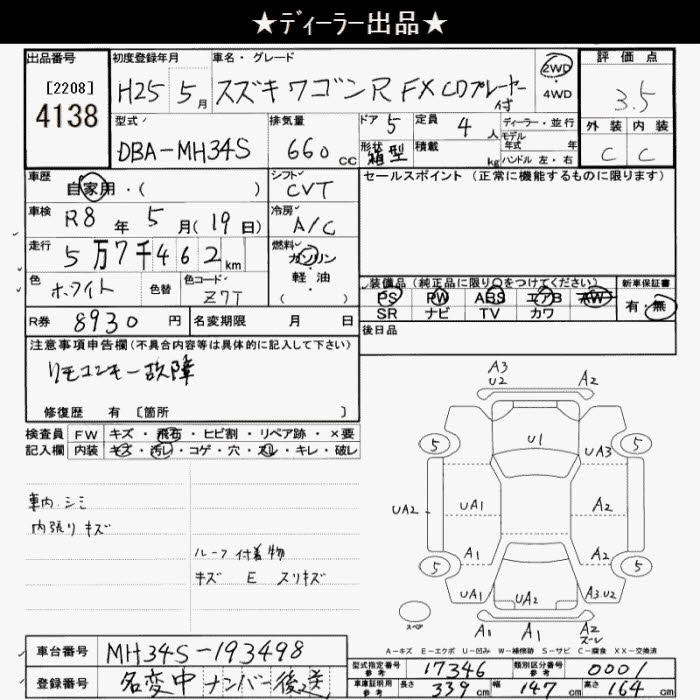 ★ディーラー出品★
出品番号 初度登録年月 車名・グレード 評価点
[2208] 4138 H25 5月 スズキ ワゴンR FX CDプレーヤー付 2WD 4WD 3.5
型式 排気量 ドア 5 定員 4人 ディーラー・並行 外装 内装
DBA-MH34S 660cc 形状 箱型 積載 kg モデル年式 年 ハンドル 左・右 C C
車歴 自家用・( ) シフト CVT セールスポイント (正常に機能するものに限ります)
車検 R8年 5月(19日) 冷房 A/C
走行 5万7千462km 燃料 ガソリン 軽・油 ( )
色 ホワイト 色替 色コード Z7T
装備品 (純正品に限り○をつけてください) 新車保証書
PS PW ABS エアB AW 有・無
SR ナビ TV カワ
R券 8930円 名変期限 月 日 後日品
注意事項申告欄(不具合内容等は具体的に記入して下さい)
リモコンキー故障
修復歴 有 [箇所 ]
検査員 FW キズ・飛石・ヒビ割・リペア跡・×要
記入欄 内装 キズ・汚レ・コゲ・穴・スレ・キレ・破レ
車内シミ
内張りキズ
ルーフ付着物
キズ E スリキズ
A3 U2 A2
5 U1 5
UA3
UA2 UA1 A2
A1 A2
5 5
UA1 UA2 A3.U2
スペア A1 A1 A2 ズーレ
A-キズ E-エクボ U-凹み W-補修跡 S-サビ C-腐食 XX-交換済
車台番号 MH34S-193498
登録番号 名変中 ナンバー後送
型式指定番号 参考 17346 類別区分番号 参考 0001
車庫証明用 参考 長さ 339cm 幅 147cm 高さ 164cm